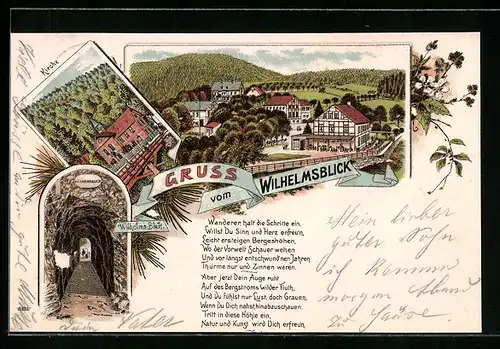 Kirche
GRUSS
vom
WILHELMSBLICK
Wilhelms-Blick
Wanderer, halt die Schritte ein,
Willst Du Sinn und Herz erfreu'n,
Leicht ersteigen Bergeshöhen,
Wo der Vorwelt Schauer wehen
Und vor längst entschwund'nen Jahren
Thürme nur und Zinnen waren.
Aber jetzt Dein Auge ruht
Auf des Bergstroms wilder Fluth,
Und Du fühlst nur Lust, doch Grauen,
Wenn Du Dich nahst, hinabzuschauen.
Tritt in diese Höhle ein,
Natur und Kunst wird Dich erfreu'n
Mein lieber
guter Sohn
ich komme
morgen Abend
zu
Vater